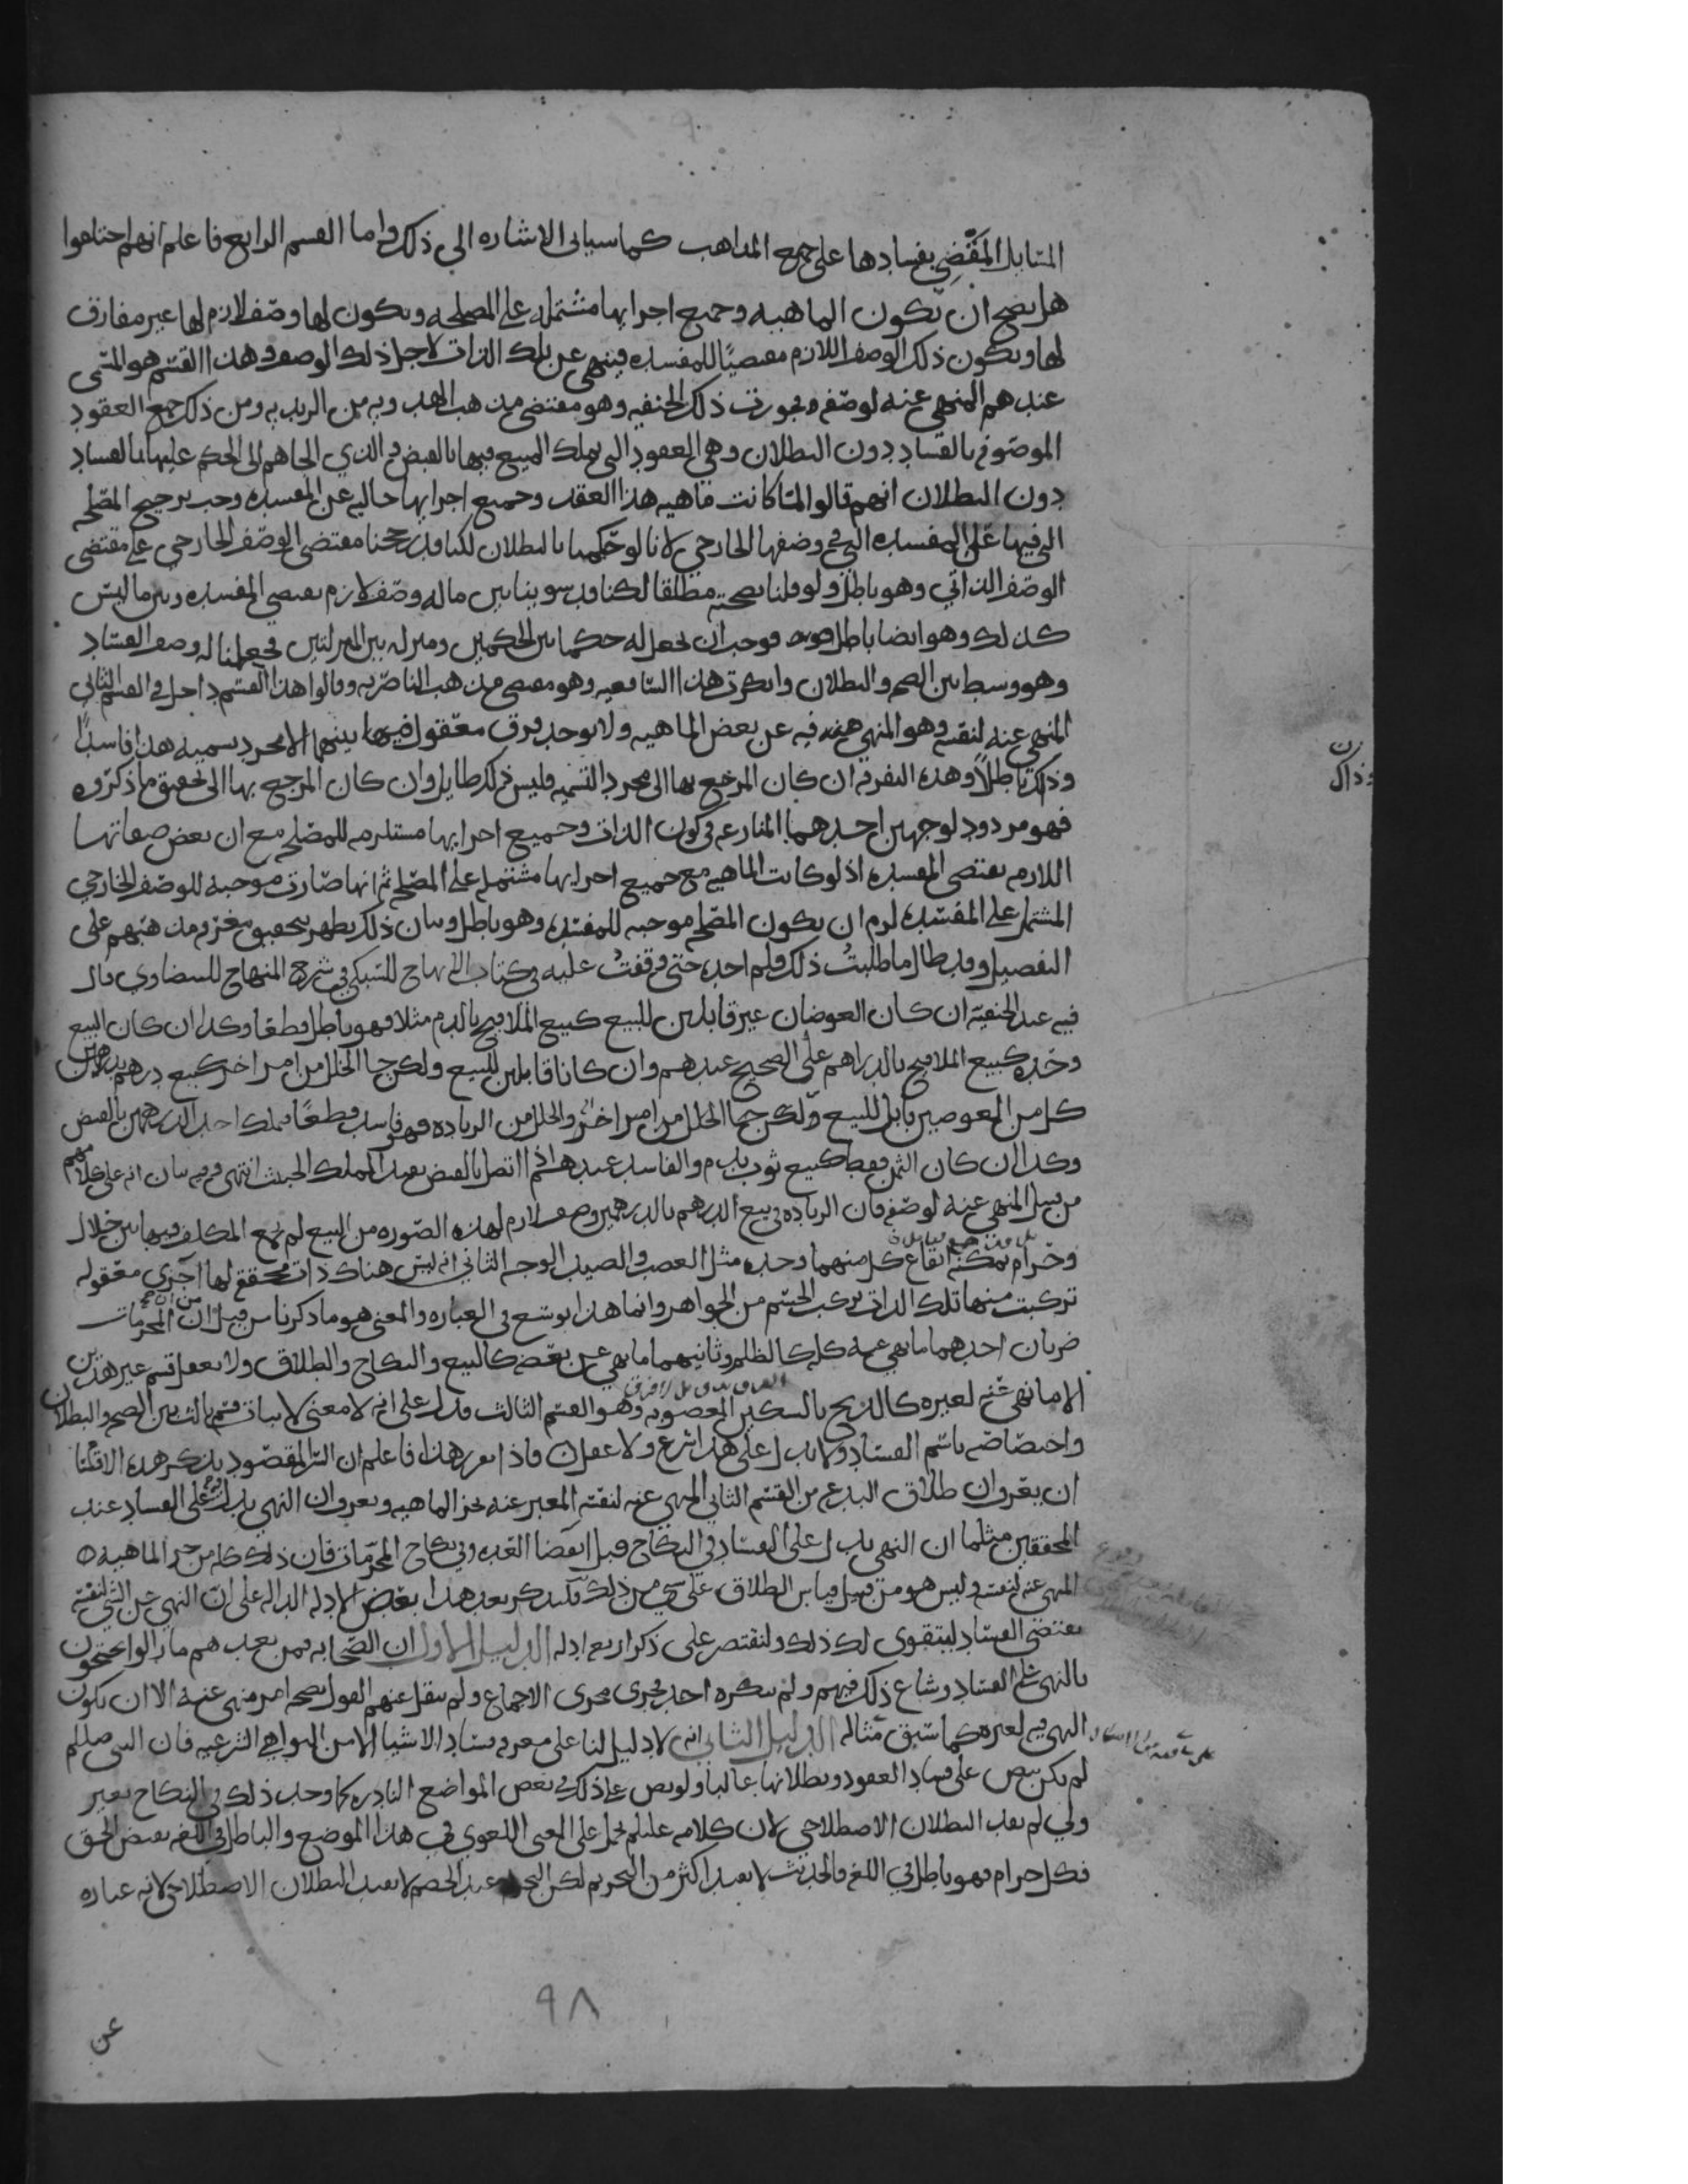 المسايل المقضي بفسادها على جميع المذاهب كما سياتي الاشاره الى ذلك واما القسم الرابع فاعلم انهم اختلفوا
هل يصح ان تكون الماهيه وجميع اجزايها مشتمله على المصلحه ويكون لها وصف لازم لها غير مفارق
لها ويكون ذلك الوصف اللازم مقتضيًا للمفسده فينهى عن تلك الذات لاجل ذلك الوصف وهذا القسم هو المسمى
عندهم المنهي عنه لوصفه فجوزت ذلك الحنفيه وهو مقتضى مذهب الهدويه من الزيديه ومن ذلك جميع العقود
الموصوفه بالفساد دون البطلان وهي العقود التي يملك المبيع فيها بالقبض والذي الجاهم الى الحكم عليها بالفساد
دون البطلان انهم قالوا لمّا كانت ماهيه هذا العقد وجميع اجزايها خاليه عن المفسده وجب ترجيح المصلحه
التي فيها على المفسده التي في وصفها الخارجي لانا لو حكمنا بالبطلان لكنا قد رجحنا مقتضى الوصف الخارجي على مقتضى
الوصف الذاتي وهو باطل ولو قلنا بصحته مطلقا لكنا قد سوينا بين ماله وصف لازم يقتضي المفسده وبين ما ليس
كذلك وهو ايضا باطل فوجب ان نجعل له حكما بين الحكمين ومنزله بين المنزلتين فجعلنا له وصف الفساد
وهو وسط بين الصحه والبطلان وانكرت هذا الشافعيه وهو مقتضى مذهب الناصريه وقالوا هذا القسم داخل في القسم الثاني
المنهي عنه لنفسه وهو المنهي فيه عن بعض الماهيه ولا يوجد فرق معقول بينهما الا مجرد تسميه هذا فاسدًا
وذلك باطلًا وهذه التفرقه ان كان المرجع بها الى مجرد التسميه فليس في ذلك طايل وان كان المرجع بها الى تحقيق ما ذكروه
فهو مردود لوجهين احدهما المنازعه في كون الذات وجميع اجزايها مستلزمه للمصلحه مع ان بعض صفاتها
اللازمه يقتضي المفسده اذ لو كانت الماهيه مع جميع اجزايها مشتمله على المصلحه ثم انها صارت موجبه للوصف الخارجي
المشتمل على المفسده لزم ان يكون المصلحه موجبه للمفسده وهو باطل وبيان ذلك يظهر بتحقيق معرفه مذهبهم على
التفصيل وقد طال ما طلبتُ ذلك فلم اجده حتى وقفتُ عليه في كتاب الابهاج للسبكي في شرح المنهاج للبيضاوي قال
فيه عند الحنفيه ان كان العوضان غير قابلين للبيع كبيع الملاقيح بالدم مثلا فهو باطل قطعا وكذا ان كان البيع
وحده كبيع الملاقيح بالدراهم على الصحيح عندهم وان كانا قابلين للبيع ولكن جا الخلل من امر اخر كبيع درهم بدرهمين
كل من العوضين قابل للبيع ولكن جا الخلل من امر اخر والخلل من الزياده فهو فاسد قطعًا فيملك احد الدرهمين بالقبض
وكذا ان كان الثمن فقط كبيع ثوب بدم والفاسد عندهم اذا اتصل بالقبض يفيد الملك الخبيث انتهى وفيه بيان انه على كلامهم
من قبيل المنهي عنه لوصفه فان الزياده في بيع الدرهم بالدرهمين وصف لازم لهذه الصوره من البيع لم يجمع المكلف فيها بين حلال
وحرام يمكنه ايقاع كل منهما وحده مثل الغصب والصيد الوجه الثاني انه ليس هناك ذات محققه لها اجزا معقوله
تركبت منها تلك الذات تركب الجسم من الجواهر وانما هذا توسع في العباره والمعنى هو ما ذكرنا من قبل ان المحرمات
ضربان احدهما ما نهي عنه كله كالظلم وثانيهما ما نهي عن بعضه كالبيع والنكاح والطلاق ولا يعقل قسم غير هذين
الا ما نهي عنه لغيره كالذبح بالسكين المغصوبه وهو القسم الثالث فدل على انه لا معنى لاثبات قسم ثالث بين الصحه والبطلان
واختصاصه باسم الفساد ولا يدل على هذا شرع ولا عقل فاذا تقرر هذا فاعلم ان المقصود بذكر هذه الاقسام
ان يعرف ان طلاق البدعه من القسم الثاني المنهي عنه لنفسه المعبر عنه بجز الماهيه ويعرف ان النهي يدل على الفساد عند
المحققين مثلما ان النهي يدل على الفساد في النكاح قبل انقضا العده وفي نكاح المحرمات فان ذلك كله من جز الماهيه
المنهي عنه لنفسه وليس هو من قبيل قياس الطلاق على شي من ذلك فلنذكر بعد هذا بعض الادله الداله على ان النهي عن الشي لنفسه
يقتضي الفساد ليتقوى لك ذلك ولنقتصر على ذكر اربعه ادله الدليل الاول ان الصحابه فمن بعدهم ما زالوا يحتجون
بالنهي على الفساد وشاع ذلك فيهم ولم ينكره احد فجرى مجرى الاجماع ولم ينقل عنهم القول بصحه امر منهي عنه الا ان يكون
النهي فيه لغيره كما سبق مثاله الدليل الثاني انه لا دليل لنا على معرفه فساد الاشيا الا من النواهي الشرعيه فان النبي صللم
لم يكن ينص على فساد العقود وبطلانها غالبا ولو نص على ذلك في بعض المواضع النادره كما وجد ذلك في النكاح بغير
ولي لم يفد البطلان الاصطلاحي لان كلامه عليلم يحمل على المعنى اللغوي في هذا الموضع والباطل في اللغه نقيض الحق
فكل حرام فهو باطل في اللغه فالحديث لا يفيد اكثر من التحريم لكن التحريم عند الخصم لا يفيد البطلان الاصطلاحي لانه عباره
٩٨
عن